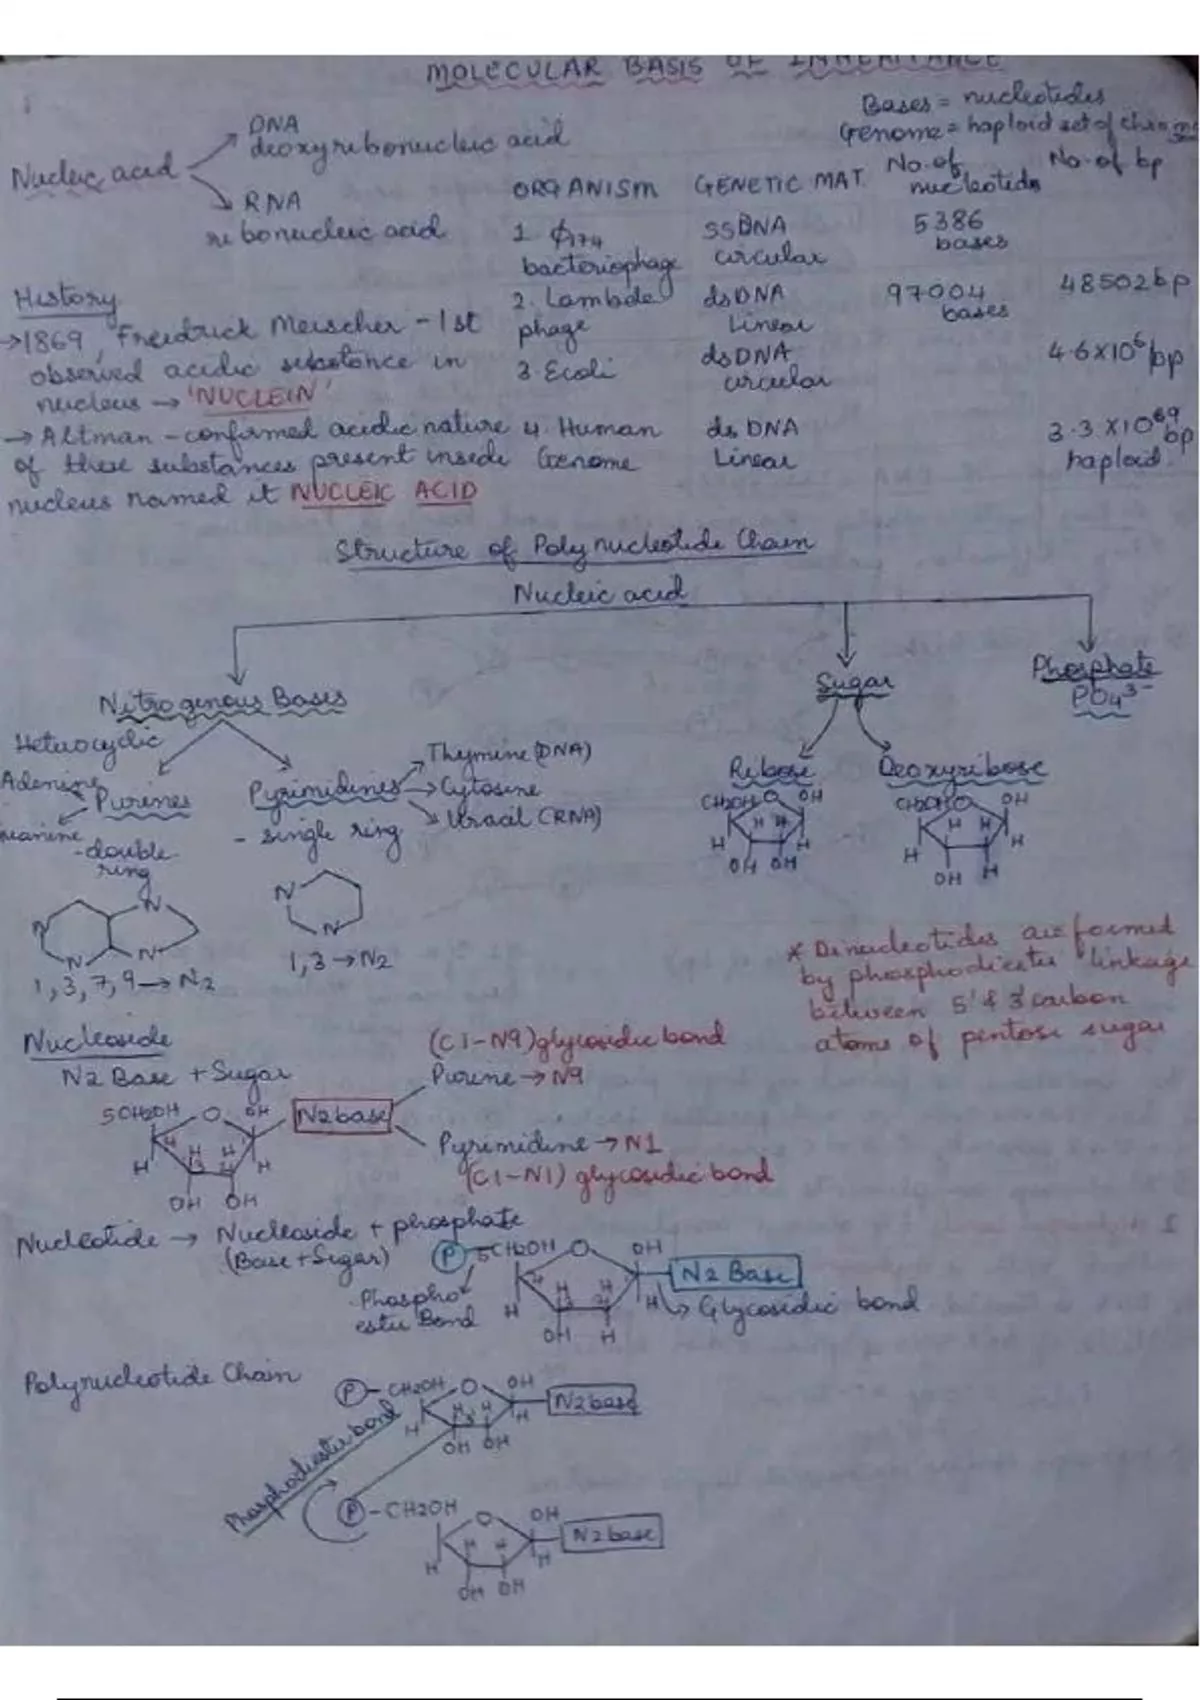 MOLECULAR BASIS OF INHERITANCE
Bases = nucleotides
Genome = haploid set of
DNA
deoxyribonucleic acid
Nucleic acid
RNA
ribonucleic acid
ORGANISM GENETIC MAT. No. of nucleotids No. of bp
1. ϕ174 bacteriophage ssDNA circular 5386 bases
2. Lambda phage dsDNA Linear 97004 bases 48502bp
3. Ecoli dsDNA circular 4.6x10⁶ bp
4. Human Genome ds DNA Linear haploid.
History
→1869, Freedrick Meischer - 1st
observed acidic substance in
nucleus → 'NUCLEIN'
→ Altman - confirmed acidic nature
of these substances present inside
nucleus named it NUCLEIC ACID
Structure of Polynucleotide Chain
Nucleic acid
Nitrogenous Bases
Sugar
Phosphate
PO4³⁻
Heterocyclic
Adenine
Purines
- double
ring
Pyrimidines
- single ring
Thymine (DNA)
Cytosine
Uracil (RNA)
Ribose
Deoxyribose
CH2OH O OH
H H H H
OH OH
CH2OH O OH
H H H H
OH H
N N
N N
1, 3, 7, 9 → N2
N
N
1, 3 → N2
* Dinucleotides are formed
by phosphodiester linkage
between 5' & 3' carbon
atoms of pentose sugar
Nucleoside
N2 Base + Sugar
(C1-N9) glycosidic bond
Purine → N9
5CH2OH O OH N2 base
H H H H
OH OH
Pyrimidine → N1
(C1-N1) glycosidic bond
Nucleotide → Nucleoside + phosphate
(Base + Sugar)
P 5CH2OH O OH N2 Base
Phospho
ester Bond
H H H H
OH H
Glycosidic bond
Polynucleotide Chain
P - CH2OH O OH N2 base
H H H H
OH OH
Phosphodiester bond
P - CH2OH O OH N2 base
H H H H
OH OH